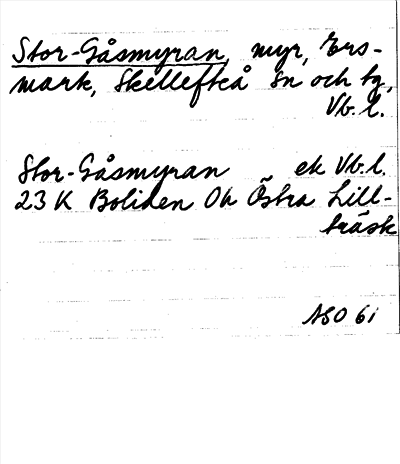 Stor-Gåsmyran, myr, Ers-
mark, Skellefteå sn och tg,
Vb. l.
Stor-Gåsmyran ek Vb. l.
23 K Boliden 0h Östra Lill-
träsk
NSO 6i